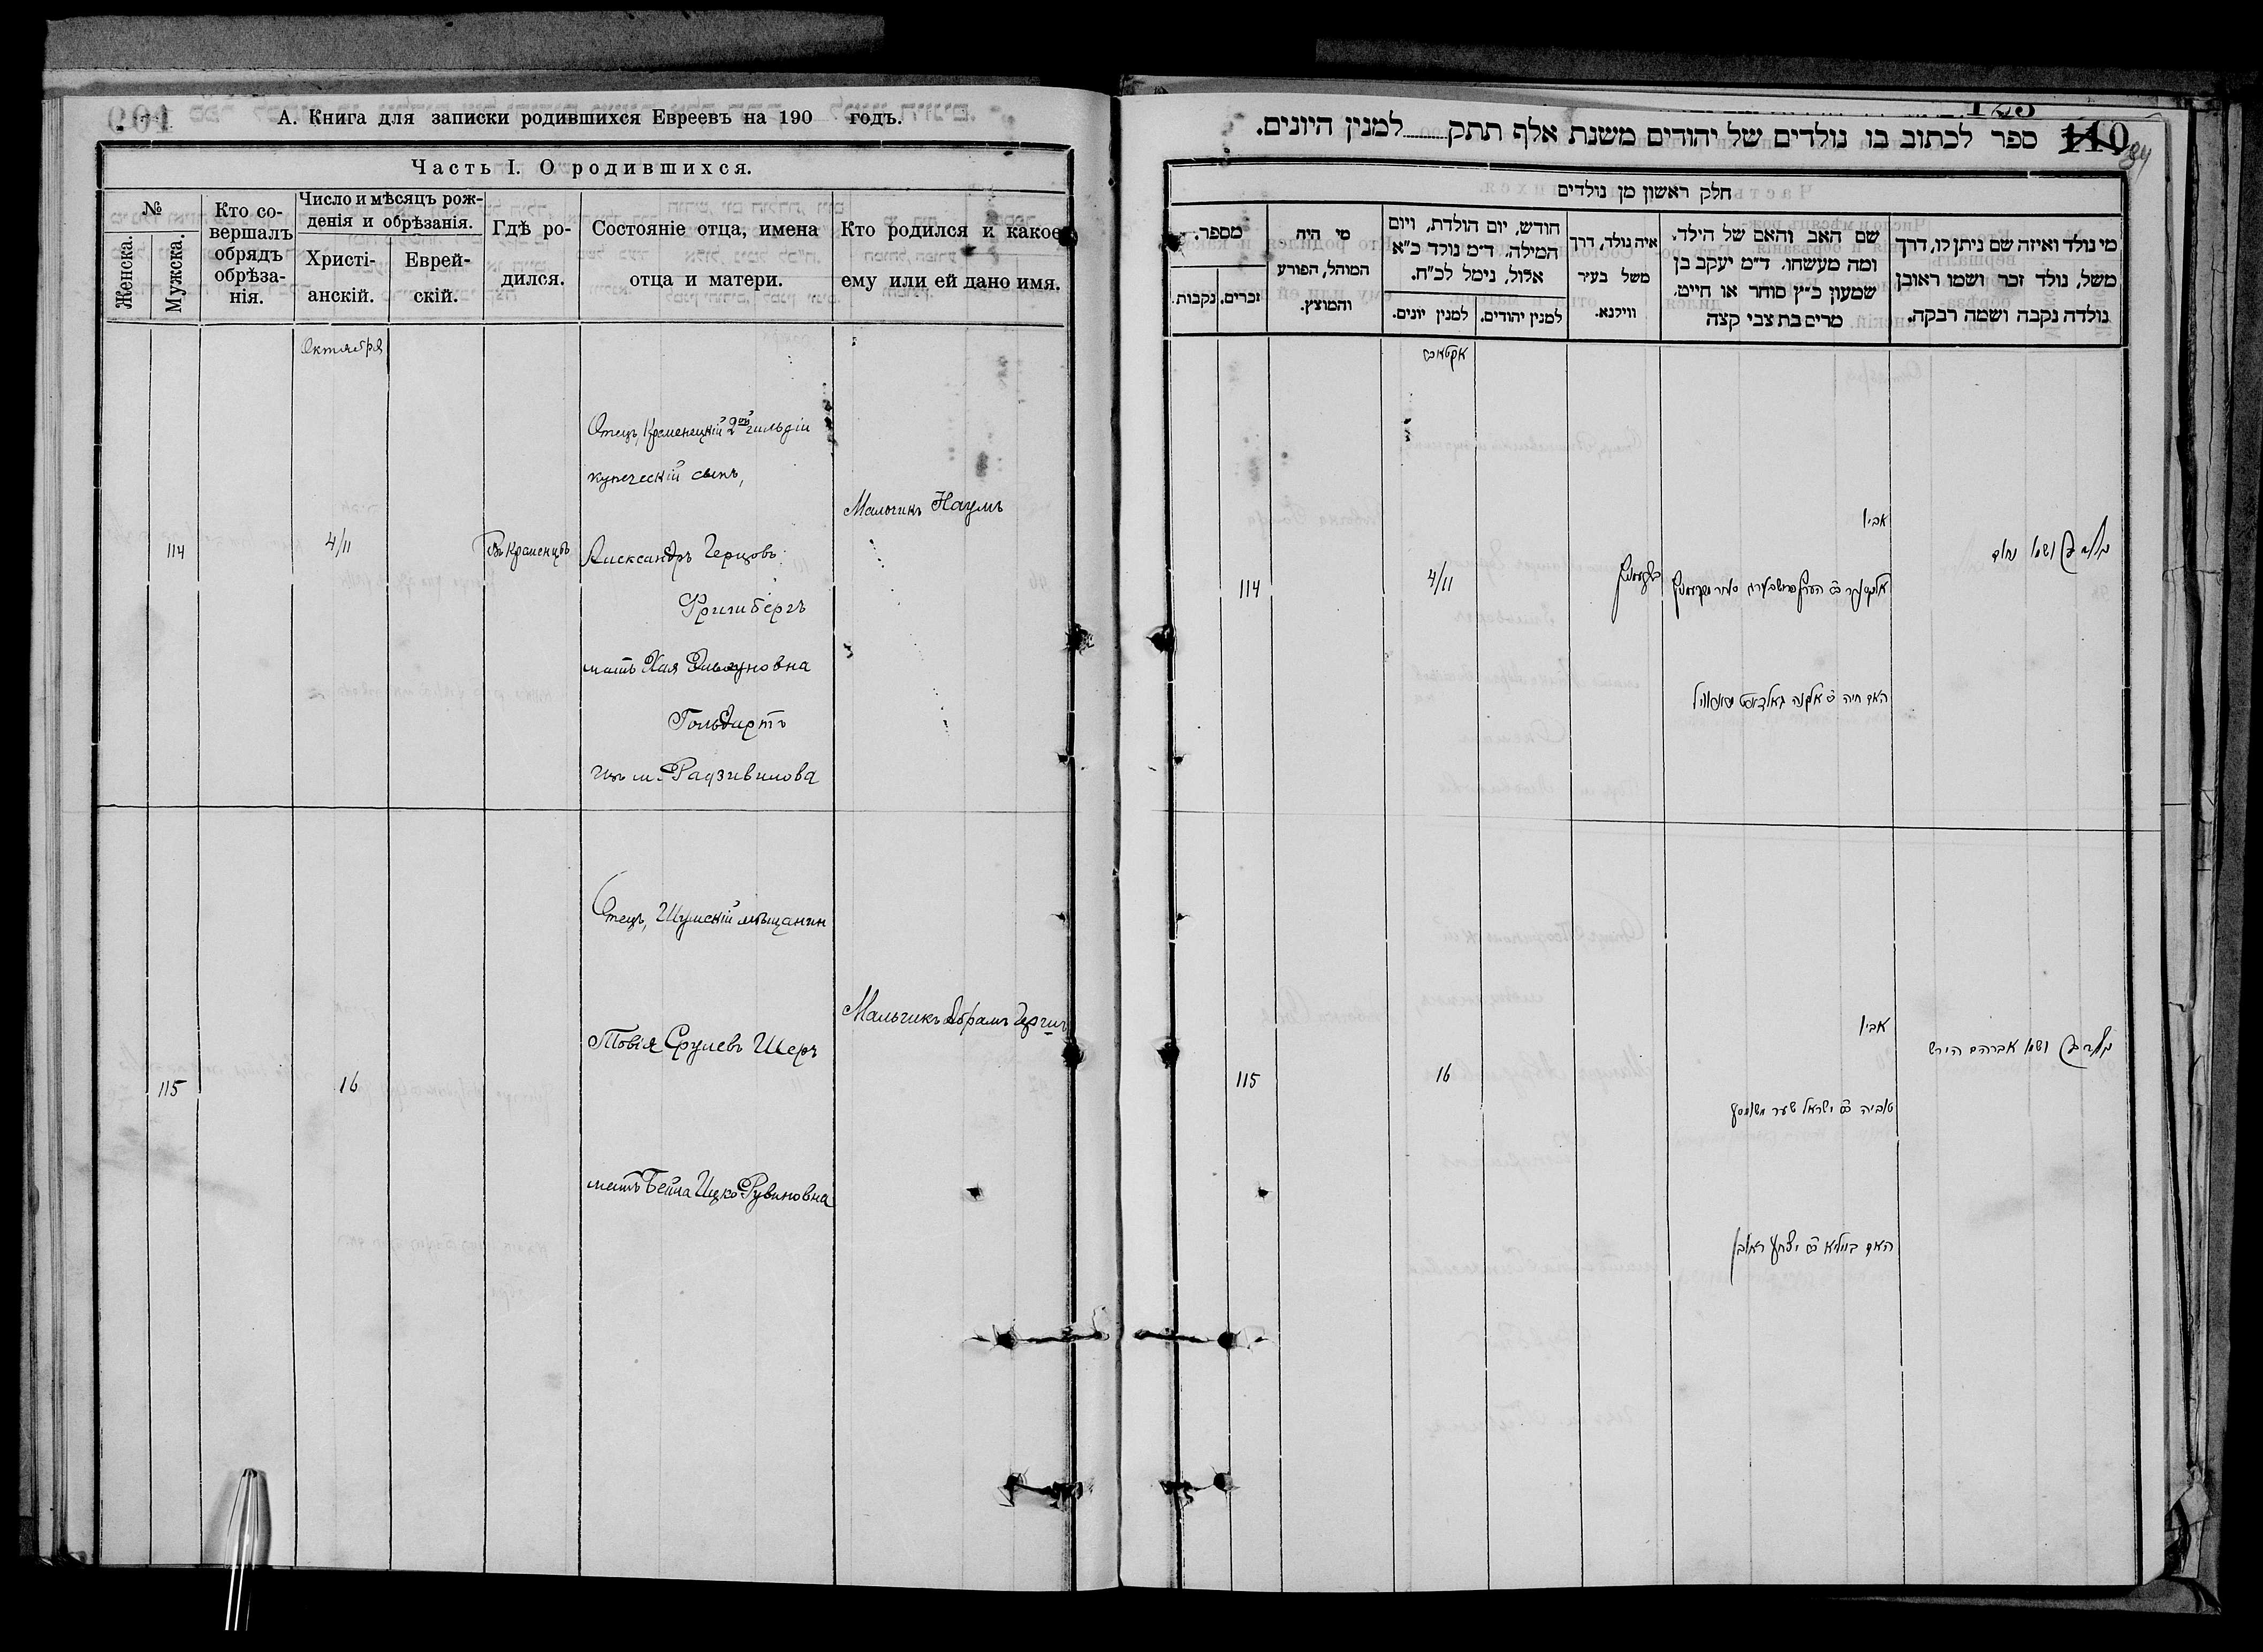 А. Книга для записки родившихся Евреевъ на 190 годъ.
Часть I. О родившихся.
№
Женска.
Мужска.
Кто со-
вершалъ
обрядъ
обрѣза-
нія.
Число и мѣсяцъ рож-
денія и обрѣзанія.
Христі-
анскій.
Еврей-
скій.
Гдѣ ро-
дился.
Состояніе отца, имена
отца и матери.
Кто родился и какое
ему или ей дано имя.
Октября
114
4/11
Въ Кременцѣ
Отецъ, Кременецкій 2ой гильдіи
купеческій сынъ,
Александръ Герцовъ
мать Хая
Гольдартъ
изъ м. Радзивилова
Мальчикъ Наумъ
115
16
Отецъ, Шумскій мѣщанин
Товія Срулевъ Шеръ
мать Бейла Ицко-Рувиновна
Мальчикъ Абрамъ Герш
110
ספר לכתוב בו נולדים של יהודים משנת אלף תתק למנין היונים.
חלק ראשון מן נולדים
מספר.
זכרים.
נקבות.
מי היה
המוהל, הפורע
והמוצץ.
חודש, יום הולדת, ויום
המילה. ד״מ נולד כ״א
אלול, נימל לכ״ח.
למנין יונים.
למנין יהודים.
איה נולד, דרך
משל בעיר
ווילנא.
שם האב והאם של הילד.
ומה מעשהו. ד״מ יעקב בן
שמעון כ״ץ סוחר או חייט.
מרים בת צבי קצה
מי נולד ואיזה שם ניתן לו, דרך
משל, נולד זכר ושמו ראובן
נולדה נקבה ושמה רבקה.
אקטאבר
114
4/11
אביו
האם חיה
ושמו נחום
115
16
אביו
טוביה ישראל שער
האם ביילא יצחק ראובן
ושמו אברהם הירש